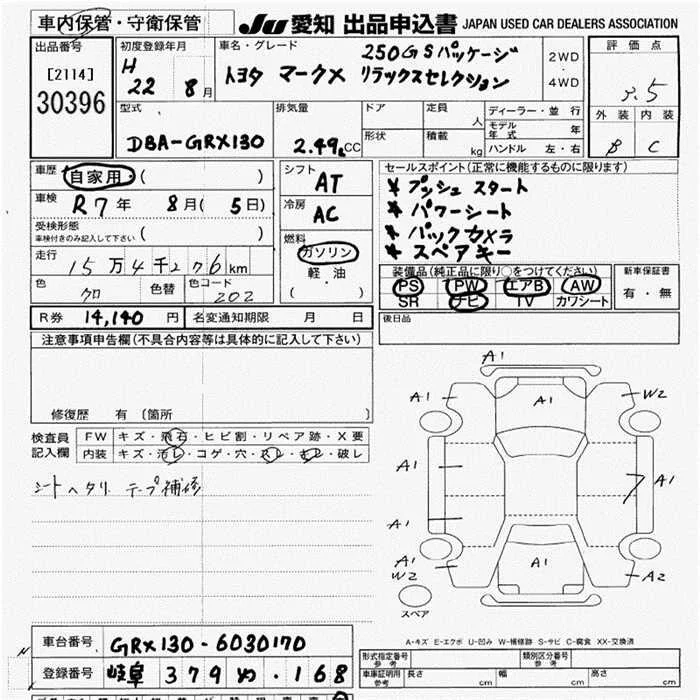 車内保管・守衛保管
JU 愛知 出品申込書 JAPAN USED CAR DEALERS ASSOCIATION
出品番号
[2114]
30396
初度登録年月
H 22 8月
車名・グレード
トヨタ マークX 250G Sパッケージ リラックスセレクション
2WD
・
4WD
評価点
3.5
外装 内装
B C
型式
DBA-GRX130
排気量
2.49L CC
ドア
定員 人
形状
積載 kg
ディーラー・並行
モデル年式 年
ハンドル 左・右
車歴 自家用・( )
車検 R7年 8月( 5日)
受検形態
車検付きのみ記入して下さい ( )
走行
15万4千276km
色 クロ 色替 色コード 202
シフト
AT
冷房
AC
燃料
ガソリン
軽・油
・( )
セールスポイント(正常に機能するものに限ります)
* プッシュ スタート
* パワーシート
* バックカメラ
* スペアキー
装備品(純正品に限り○をつけてください)
PS PW エアB AW
SR ナビ TV カワシート
新車保証書
有・無
R券 14,140 円 名変通知期限 月 日
後日品
注意事項申告欄(不具合内容等は具体的に記入して下さい)
修復歴 有 〔箇所 〕
検査員
記入欄
FW キズ・飛石・ヒビ割・リペア跡・X要
内装 キズ・汚レ・コゲ・穴・スレ・キレ・破レ
シートヘタリ テープ補修
A1
A1
A1
W2
A1
A1
A1
A1
W2
A1
A2
スペア
A-キズ E-エクボ U-凹み W-補修跡 S-サビ C-腐食 XX-交換済
車台番号 GRX130-6030170
登録番号 岐阜 379 め・168
形式指定番号
参考
類別区分番号
参考
車庫証明用
参考
長さ cm 幅 cm 高さ cm